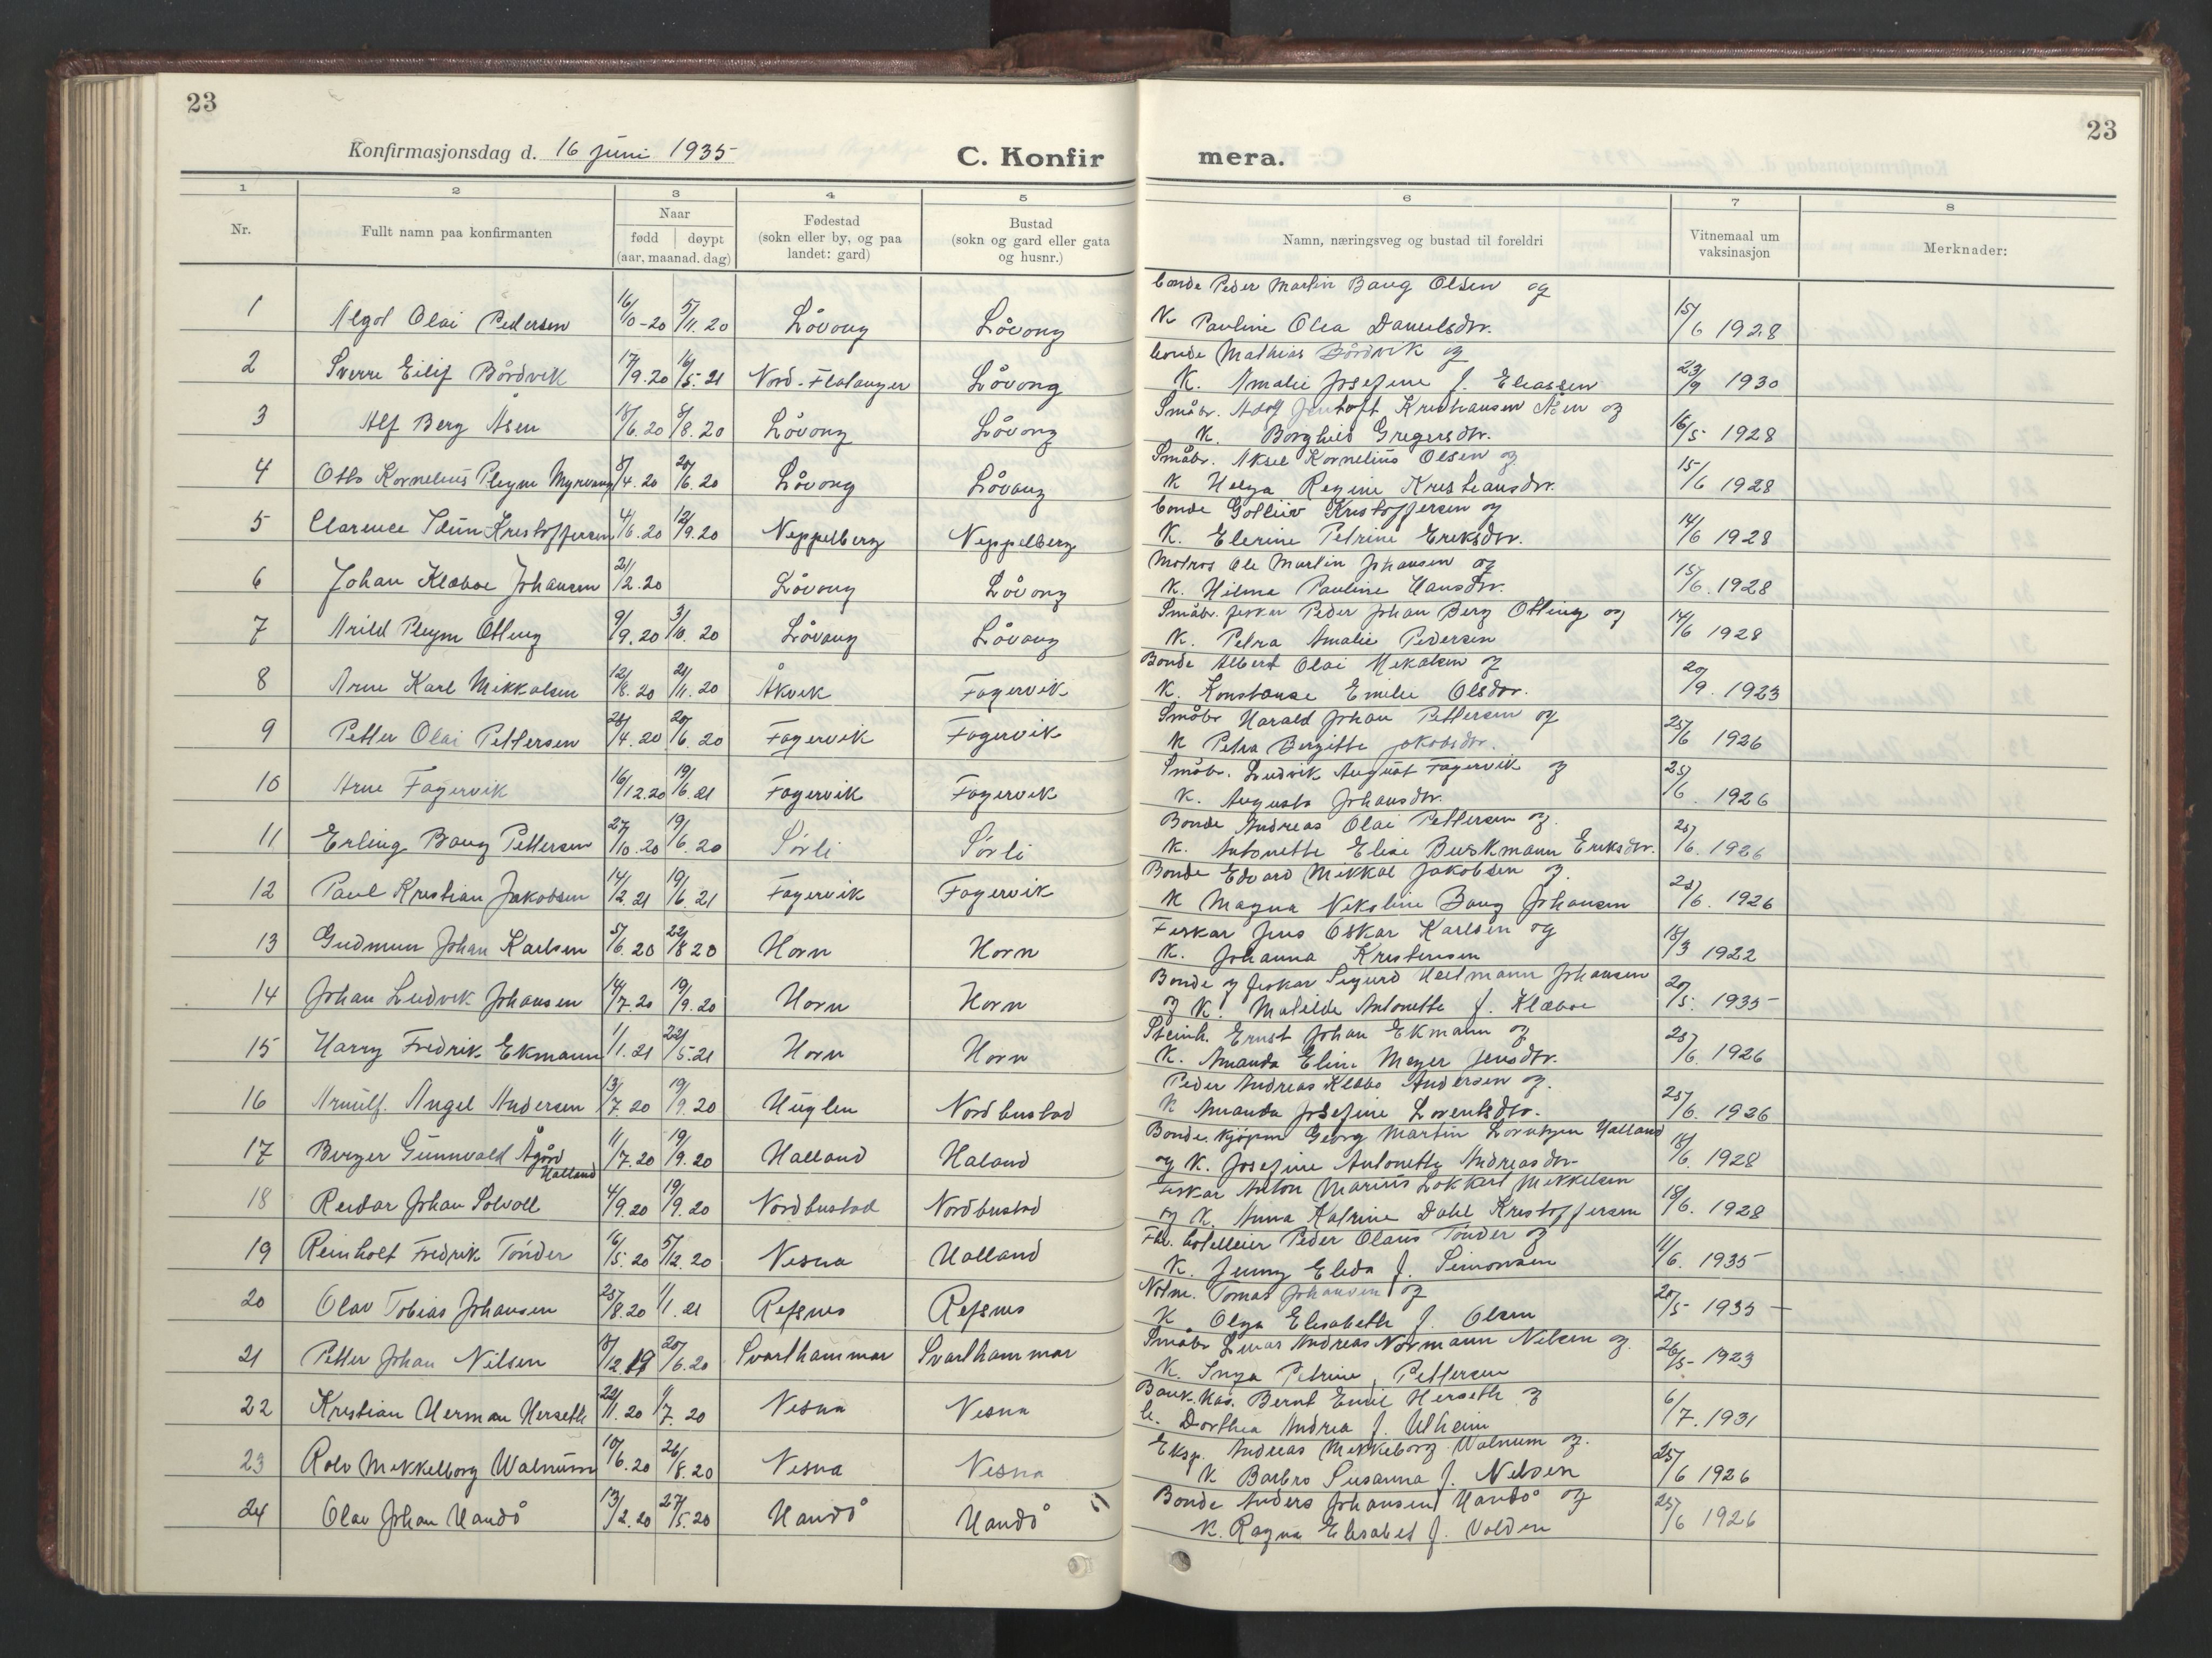 23
Konfirmasjonsdag d. 16 juni 1935
C. Konfir
mera.
23
1 2 3 4 5 6 7 8
Nr.
Fullt namn paa konfirmanten
Naar
fødd | døypt
(aar, maanad. dag)
Fødestad
(sokn eller by, og paa
landet: gard)
Bustad
(sokn og gard eller gata
og husnr.)
Namn, næringsveg og bustad til foreldri
Vitnemaal um
vaksinasjon
Merknader:
bonde Peder Martin Baug Olsen og
1 Algot Olai Pedersen 16/10-20 5/11.20 Løvong Løvong K Pauline Olea Danielsdtr. 15/6 1928
bonde Mathias Bårdvik og
2 Sverre Eilif Bårdvik 17/9.20 16/5.21 Nord-Flatanger Løvong K. Amalie Josefine f. Eliassen 23/9 1930
Småbr. Adolf Jentoft Kristiansen Åsen og
3 Alf Berg Åsen /6.20 8/8.20 Løvong Løvong K. Borghild Gregersdtr. 16/5 1928
Småbr. Aksel Kornelius Olsen og
4 Otto Kornelius Pleym Myrvang /4.20 20/6.20 Løvong Løvong K Helga Regine Kristiansdtr. 15/6 1928
bonde Gotleiv Kristoffersen og
5 Clarence Idun Kristoffersen 4/6.20 12/9.20 Neppelberg Neppelberg K. Elerine Petrine Eriksdtr. 14/6 1928
Matros Ole Martin Johansen og
6 Johan Klæboe Johansen 21/2.20 Løvong Løvong K. Hilma Pauline Hansdtr. 15/6.1928
Småbr. fiskar Peder Johan Berg Olting og
7 Arild Pleym Olting 9/9.20 3/10.20 Løvong Løvong K. Petra Amalie Pedersen 14/6 1928
Bonde Albert Olai Mikalsen og
8 Arne Karl Mikkalsen 12/8.20 21/11.20 Åkvik Fagervik K. Konstanse Emilie Olsdtr. 20/9.1923
Småbr Harald Johan Pettersen og
9 Petter Olai Pettersen 28/4.20 20/6.20 Fagervik Fagervik K Petra Bergitte Jakobsdtr. 25/6 1926
Småbr. Ludvik August Fagervik og
10 Arne Fagervik 16/12.20 19/6.21 Fagervik Fagervik K. Augusta Johansdtr. 25/6. 1926
Bonde Andreas Olai Pettersen og
11 Erling Baug Pettersen 27/10.20 19/6.20 Sørli Sørli K. Antonette Elise Buskmann Eriksdtr. 25/6.1926
Bonde Edvard Mikkal Jakobsen og
12 Paul Kristian Jakobsen 14/2.21 19/6.21 Fagervik Fagervik K Magna Nikoline Baug Johansen 25/6.1926
Fiskar Jens Oskar Karlsen og
13 Gudmun Johan Karlsen 5/6.20 22/8 20 Horn Horn K. Johanna Kristensen 15/3 1922
Bonde og fiskar Sigurd Heitmann Johansen
14 Johan Ludvik Johansen 14/7.20 19/9.20 Horn Horn og K. Matilde Antonette f. Klæboe 20/5.1935
Steinh. Ernst Johan Ekmann og
15 Harry Fredrik Ekmann 1/1.21 22/5.21 Horn Horn K. Amanda Eline Meyer Jensdtr. 25/6.1926
Peder Andreas Klæbo Andersen og
16 Arnulf Angel Andersen 13/7.20 19/9.20 Huglen Nordbustad K Amanda Josefine Lorentsdtr. 25/6.1926
Bonde. kjøpm Georg Martin Lorntzen Halland
17 Birger Gunnvald Ågård Halland 11/7.20 19/9.20 Halland Haland og K. Josefine Antonette Andreasdtr. /6.1928
Fiskar Anton Marius Lokkert Mikkelsen
18 Reidar Johan Solvoll 4/9.20 19/9.20 Nordbustad Nordbustad og K. Anna Katrine Dahl Kristoffersen 18/6.1928
Fhv. hotelleier Peder Olaus Tønder og
19 Reinholt Fredrik Tønder 16/5.20 5/12.20 Nesna Halland K. Jenny Elida f. Simonsen 11/6.1935
Notm. Tomas Johansen og
20 Olav Tobias Johansen 25/8.20 1/1.21 Refsnes Refsnes K Olga Elisabeth f. Olsen 20/5 1935
Småbr Andreas Normann Nilsen og
21 Petter Johan Nilsen /12.19 20/6.20 Svarthammar Svarthammar K. Inga Petrine Pettersen 26/5-1923
Bank.kas. Bernt Emil Herseth og
22 Kristian Herman Herseth 22/1.20 1/7.20 Nesna Nesna h. Dorthea Andrea f. Ulheim 6/7.1931
Eksp. Andreas Mikkelborg Walnum og
23 Rolv Mikkelborg Walnum 10/6.20 26/8.20 Nesna Nesna K Barbro Susanna f. Nilsen 25/6 1926
Bonde Anders Johansen Handå og
24 Olav Johan Handå 13/2.20 27/5.20 Handå Handå K. Ragna Elisabet f. Volden 25/6 1926